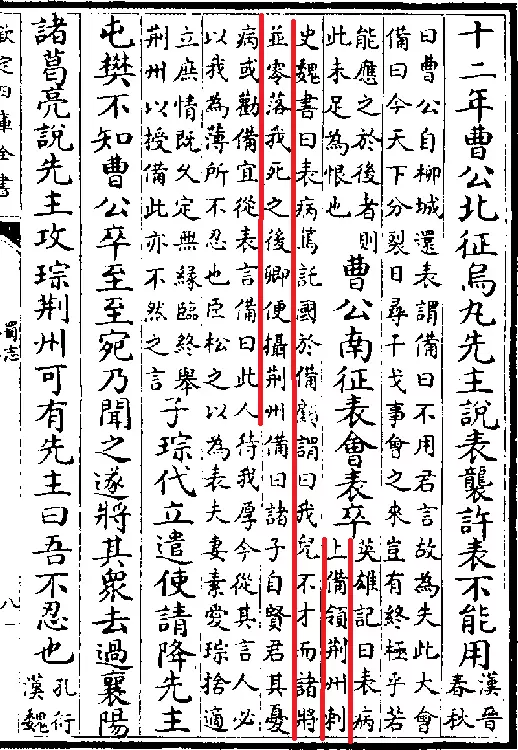 十二年曹公北征烏丸先主說表襲許表不能用漢晉春秋
曰曹公自柳城還表謂備曰不用君言故為失此大會
備曰今天下分裂日尋干戈事會之來豈有終極乎若
能應之於後者則
此未足為恨也
曹公南征表會表卒
英雄記曰表病
上備領荊州刺
史魏書曰表病篤託國於備顧謂曰我兒不才而諸將
並零落我死之後卿便攝荊州備曰諸子自賢君其憂
病或勸備宜從表言備曰此人待我厚今從其言人必
以我為薄所不忍也臣松之以為表夫妻素愛琮捨適
立庶情既久定無緣臨終舉
荊州以授備此亦不然之言
子琮代立遣使請降先主
屯樊不知曹公卒至至宛乃聞之遂將其衆去過襄陽
諸葛亮說先主攻琮荊州可有先主曰吾不忍也孔衍漢魏
欽定四庫全書
蜀志
八